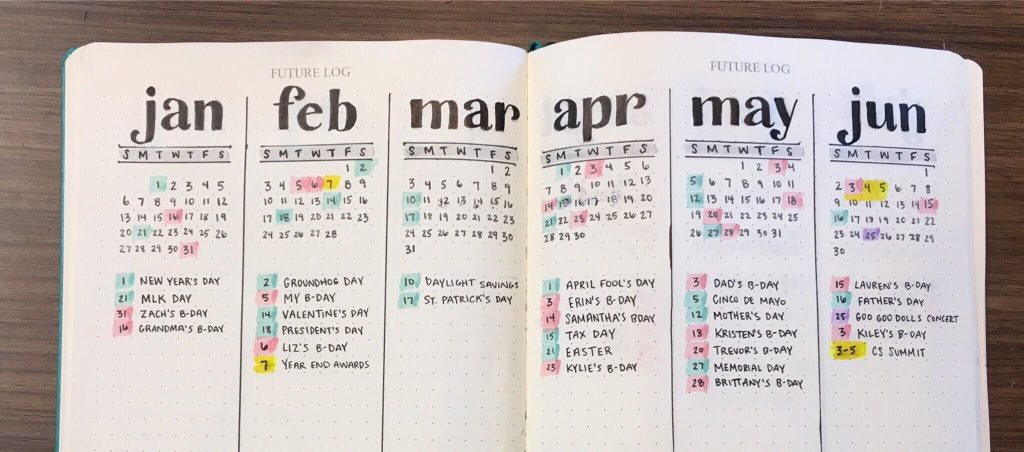 FUTURE LOG
jan
S M T W T F S
1 2 3 4 5
6 7 8 9 10 11 12
13 14 15 16 17 18 19
20 21 22 23 24 25 26
27 28 29 30 31
1 NEW YEAR'S DAY
21 MLK DAY
31 ZACH'S B-DAY
16 GRANDMA'S B-DAY
feb
S M T W T F S
1 2
3 4 5 6 7 8 9
10 11 12 13 14 15 16
17 18 19 20 21 22 23
24 25 26 27 28
2 GROUNDHOG DAY
5 MY B-DAY
14 VALENTINE'S DAY
18 PRESIDENT'S DAY
6 LIZ'S B-DAY
7 YEAR END AWARDS
mar
S M T W T F S
1 2
3 4 5 6 7 8 9
10 11 12 13 14 15 16
17 18 19 20 21 22 23
24 25 26 27 28 29 30
31
10 DAYLIGHT SAVINGS
17 ST. PATRICK'S DAY
FUTURE LOG
apr
S M T W T F S
1 2 3 4 5 6
7 8 9 10 11 12 13
14 15 16 17 18 19 20
21 22 23 24 25 26 27
28 29 30
1 APRIL FOOL'S DAY
3 ERIN'S B-DAY
14 SAMANTHA'S BDAY
15 TAX DAY
21 EASTER
23 KYLIE'S B-DAY
may
S M T W T F S
1 2 3 4
5 6 7 8 9 10 11
12 13 14 15 16 17 18
19 20 21 22 23 24 25
26 27 28 29 30 31
3 DAD'S B-DAY
5 CINCO DE MAYO
12 MOTHER'S DAY
18 KRISTEN'S B-DAY
20 TREVOR'S B-DAY
27 MEMORIAL DAY
28 BRITTANY'S B-DAY
jun
S M T W T F S
1
2 3 4 5 6 7 8
9 10 11 12 13 14 15
16 17 18 19 20 21 22
23 24 25 26 27 28 29
30
15 LAUREN'S B-DAY
16 FATHER'S DAY
25 GOO GOO DOLLS CONCERT
3 KILEY'S B-DAY
3-5 CS SUMMIT